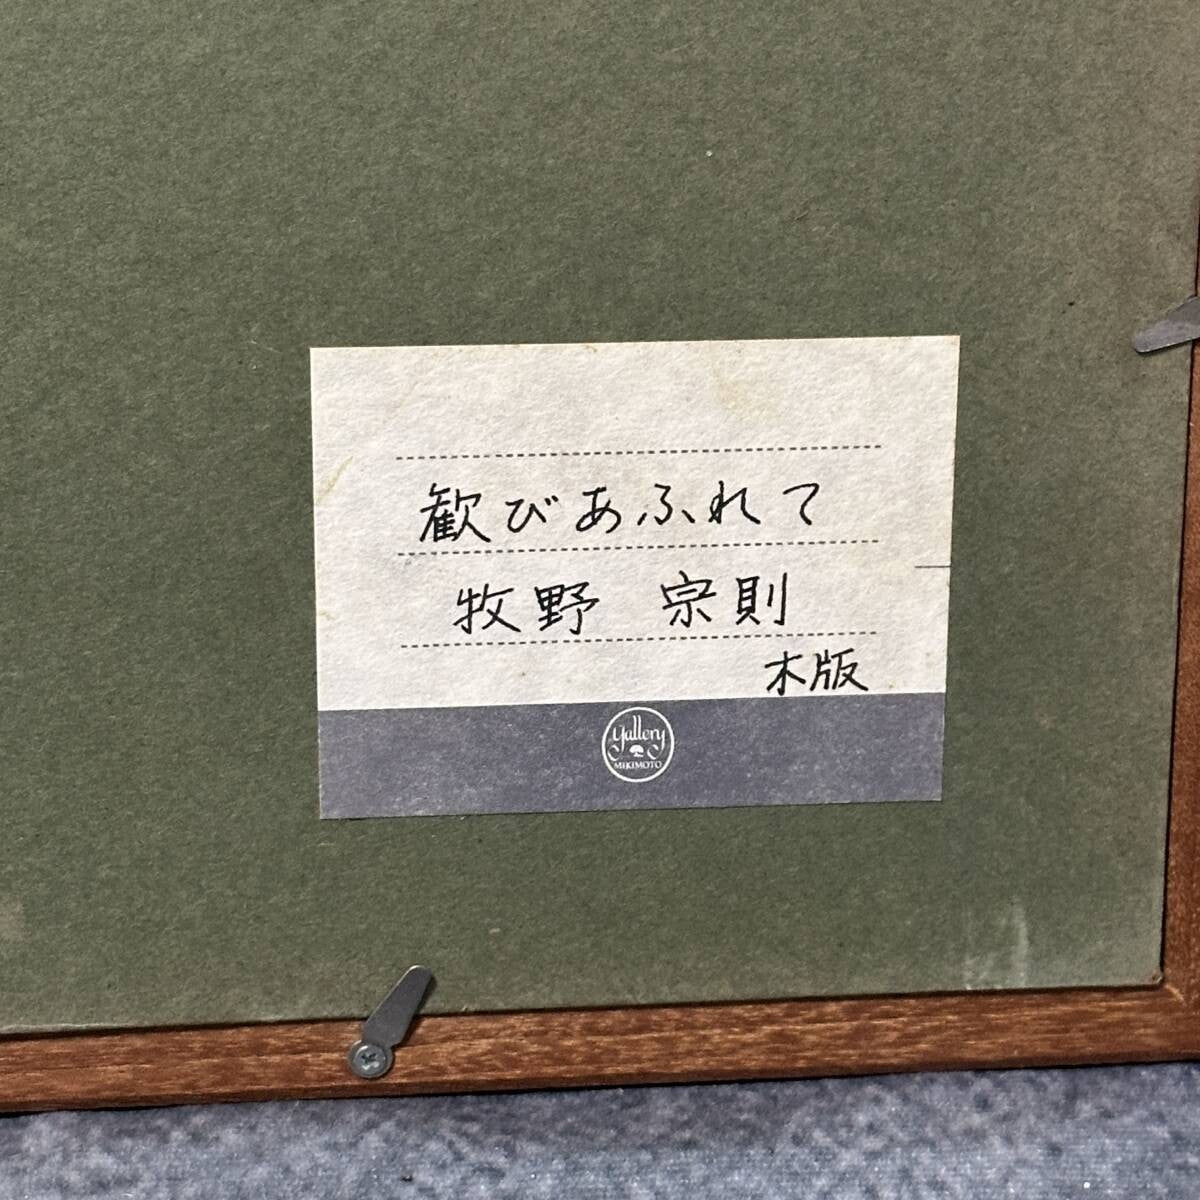 歓びあふれて
牧野 宗則
木版
gallery
MIKIMOTO